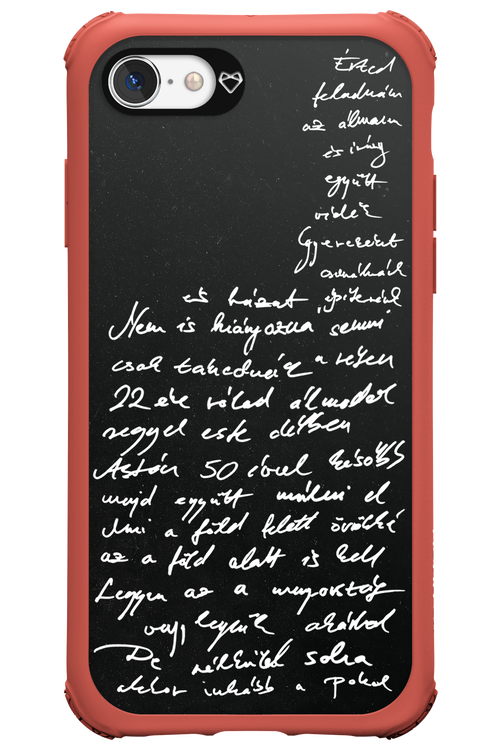 Érted
feladnám
az álmam
és így
együtt
vidék
Gyerekeket
csinálnánk
és házat építenénk
Nem is hiányozna semmi
csak
22 éve rólad álmodok
reggel este délben
Aztán 50 évvel később
majd együtt múlni el
Ami a föld felett örökké
az a föld alatt is kell
Legyen az a mayország
vagy legyünk akárhol
De nélküled soha
akkor inkább a Pokol